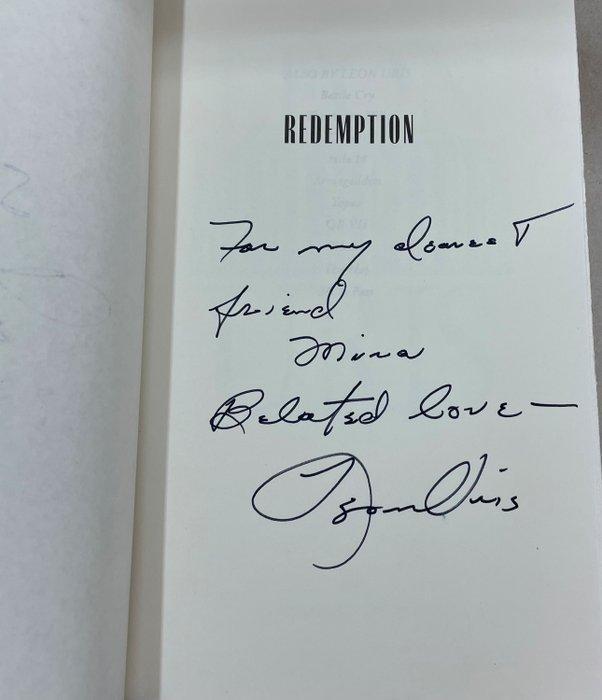 ALSO BY LEON URIS
Battle Cry
REDEMPTION
Mila 18
Armageddon
Topaz
QB VII
For my dearest
friend
Mina
Belated love —
Leon Uris